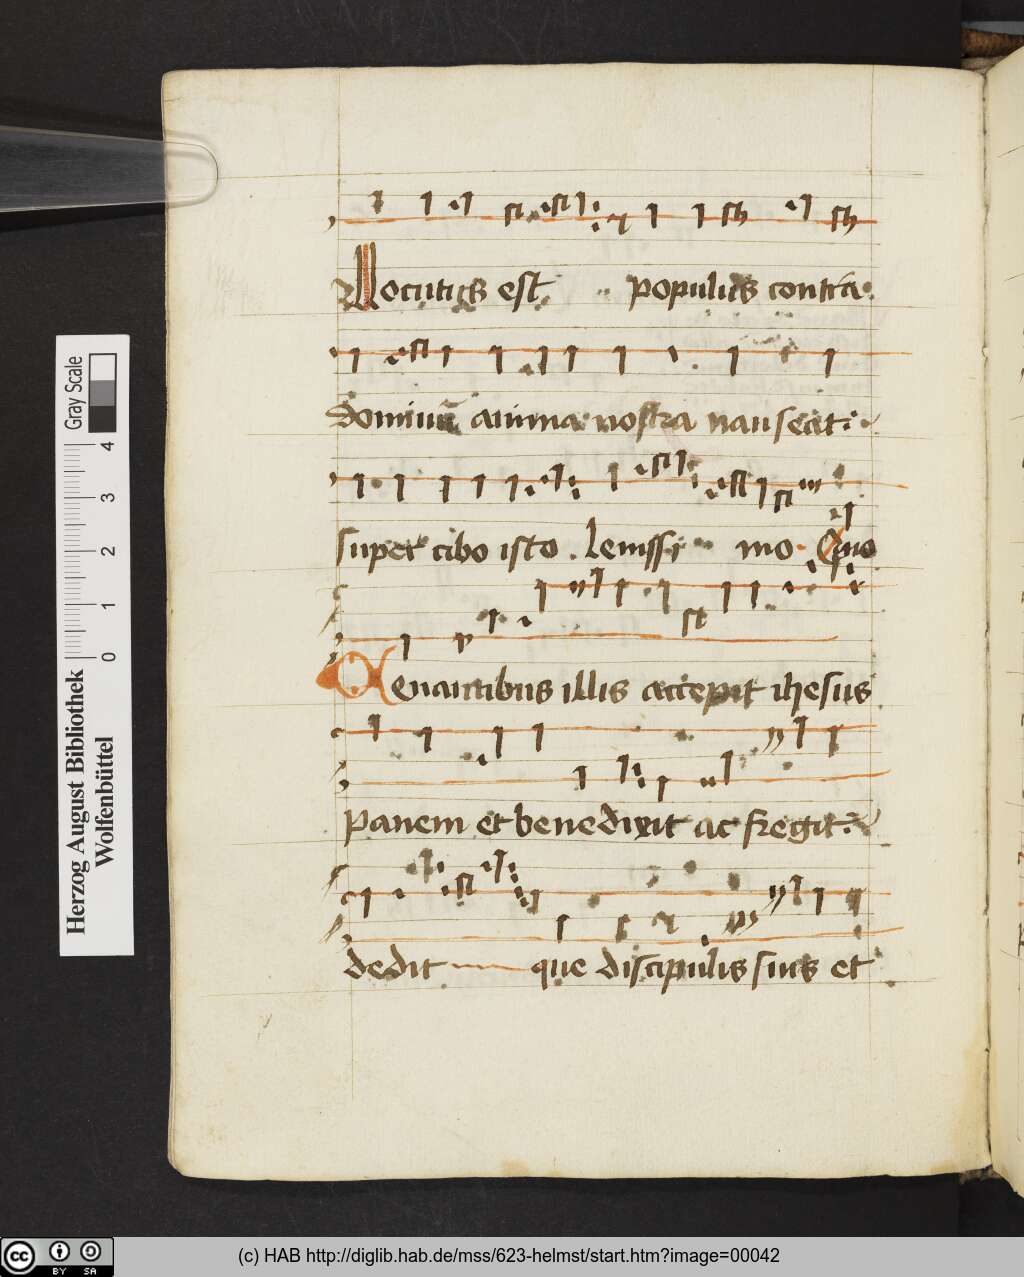 Locutus est populus contra
dominū anima nostra nauseat
super cibo isto . Leuissi mo . Quo
Cenantibus illis accepit ihesus
panem et benedixit ac fregit
dedit que discipulis suis et
Gray Scale
0 1 2 3 4
Herzog August Bibliothek
Wolfenbüttel
cc BY SA
(c) HAB http://diglib.hab.de/mss/623-helmst/start.htm?image=00042